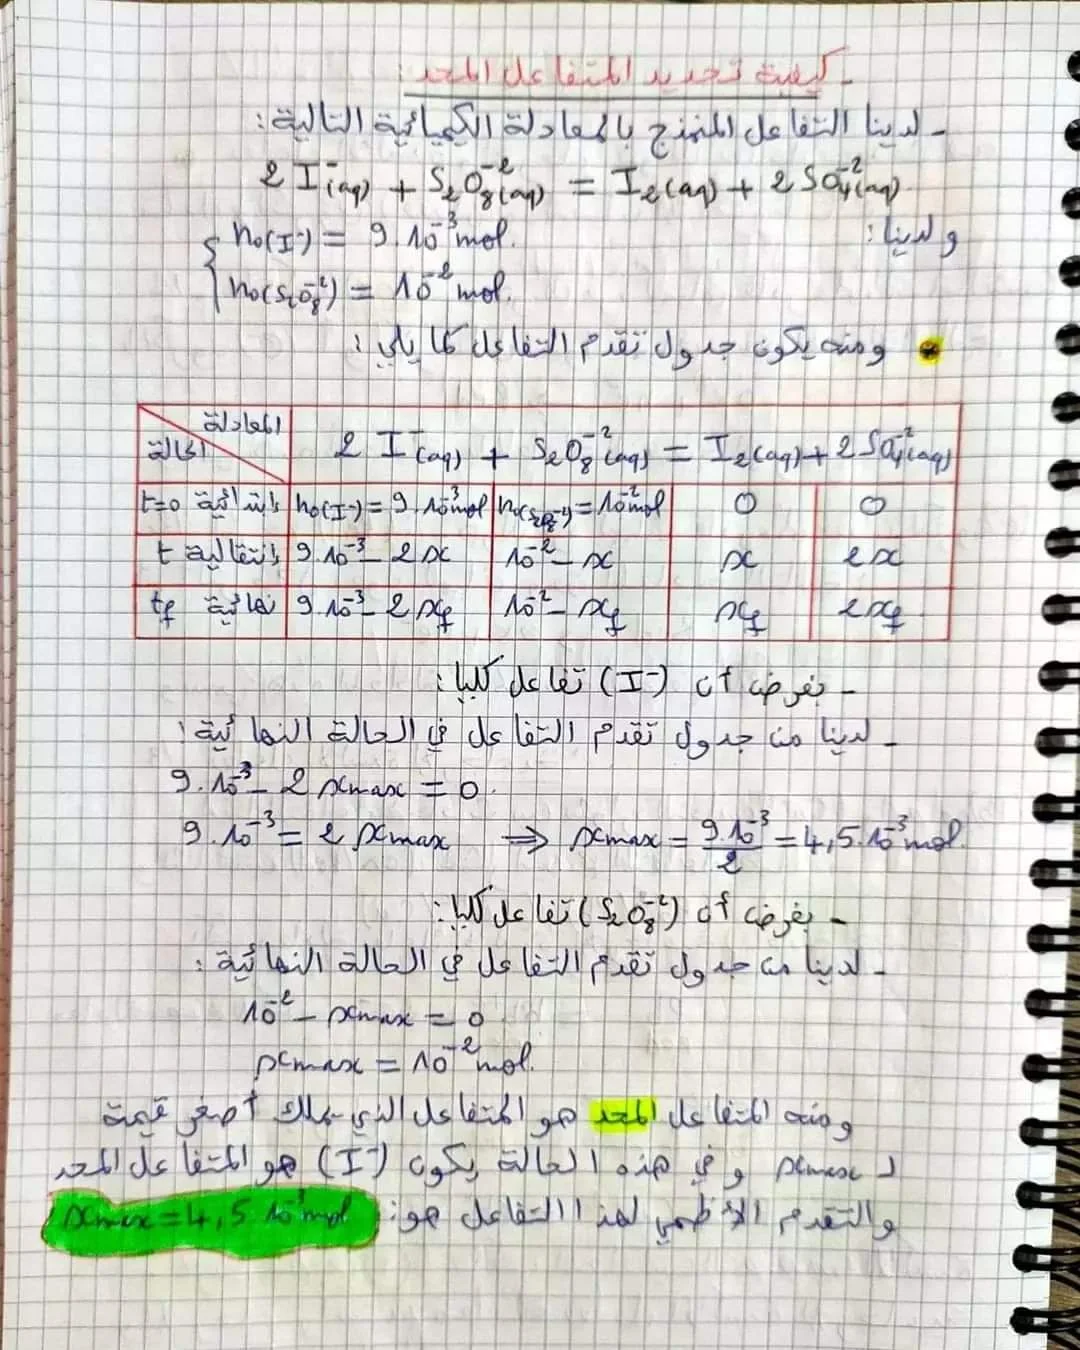 - كيفية تحديد المتفاعل المحد:
- لدينا التفاعل المنمذج بالمعادلة الكيميائية التالية:
2 I⁻(aq) + S₂O₈⁻²(aq) = I₂(aq) + 2 SO₄⁻²(aq)
ولدينا: { n₀(I⁻) = 9.10⁻³ mol.
n₀(S₂O₈⁻²) = 10⁻² mol.
ومنه يكون جدول تقدم التفاعل كما يلي:
المعادلة
الحالة
2 I⁻(aq) + S₂O₈⁻²(aq) = I₂(aq) + 2 SO₄⁻²(aq)
إبتدائية t=0 n₀(I⁻) = 9.10⁻³mol n₀(S₂O₈⁻²) = 10⁻²mol 0 0
إنتقالية t 9.10⁻³ - 2x 10⁻² - x x 2x
نهائية tf 9.10⁻³ - 2xf 10⁻² - xf xf 2xf
- بفرض أن (I⁻) تفاعل كليا:
- لدينا من جدول تقدم التفاعل في الحالة النهائية:
9.10⁻³ - 2 xmax = 0.
9.10⁻³ = 2 xmax ⇒ xmax = 9.10⁻³/2 = 4,5.10⁻³ mol.
- بفرض أن (S₂O₈⁻²) تفاعل كليا:
- لدينا من جدول تقدم التفاعل في الحالة النهائية:
10⁻² - xmax = 0
xmax = 10⁻² mol.
ومنه المتفاعل المحد هو المتفاعل الذي يملك أصغر قيمة
لـ xmax وفي هذه الحالة يكون (I⁻) هو المتفاعل المحد
والتقدم الأظمي لهذا التفاعل هو: xmax = 4,5 10⁻³ mol